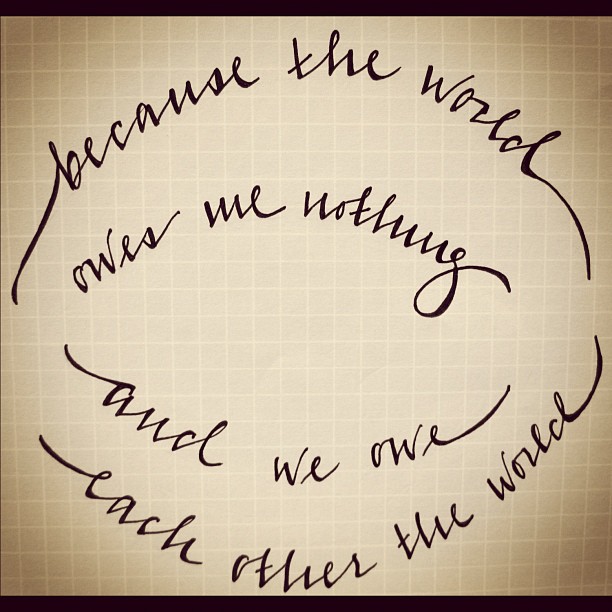 because the world
owes me nothing
and we owe
each other the world